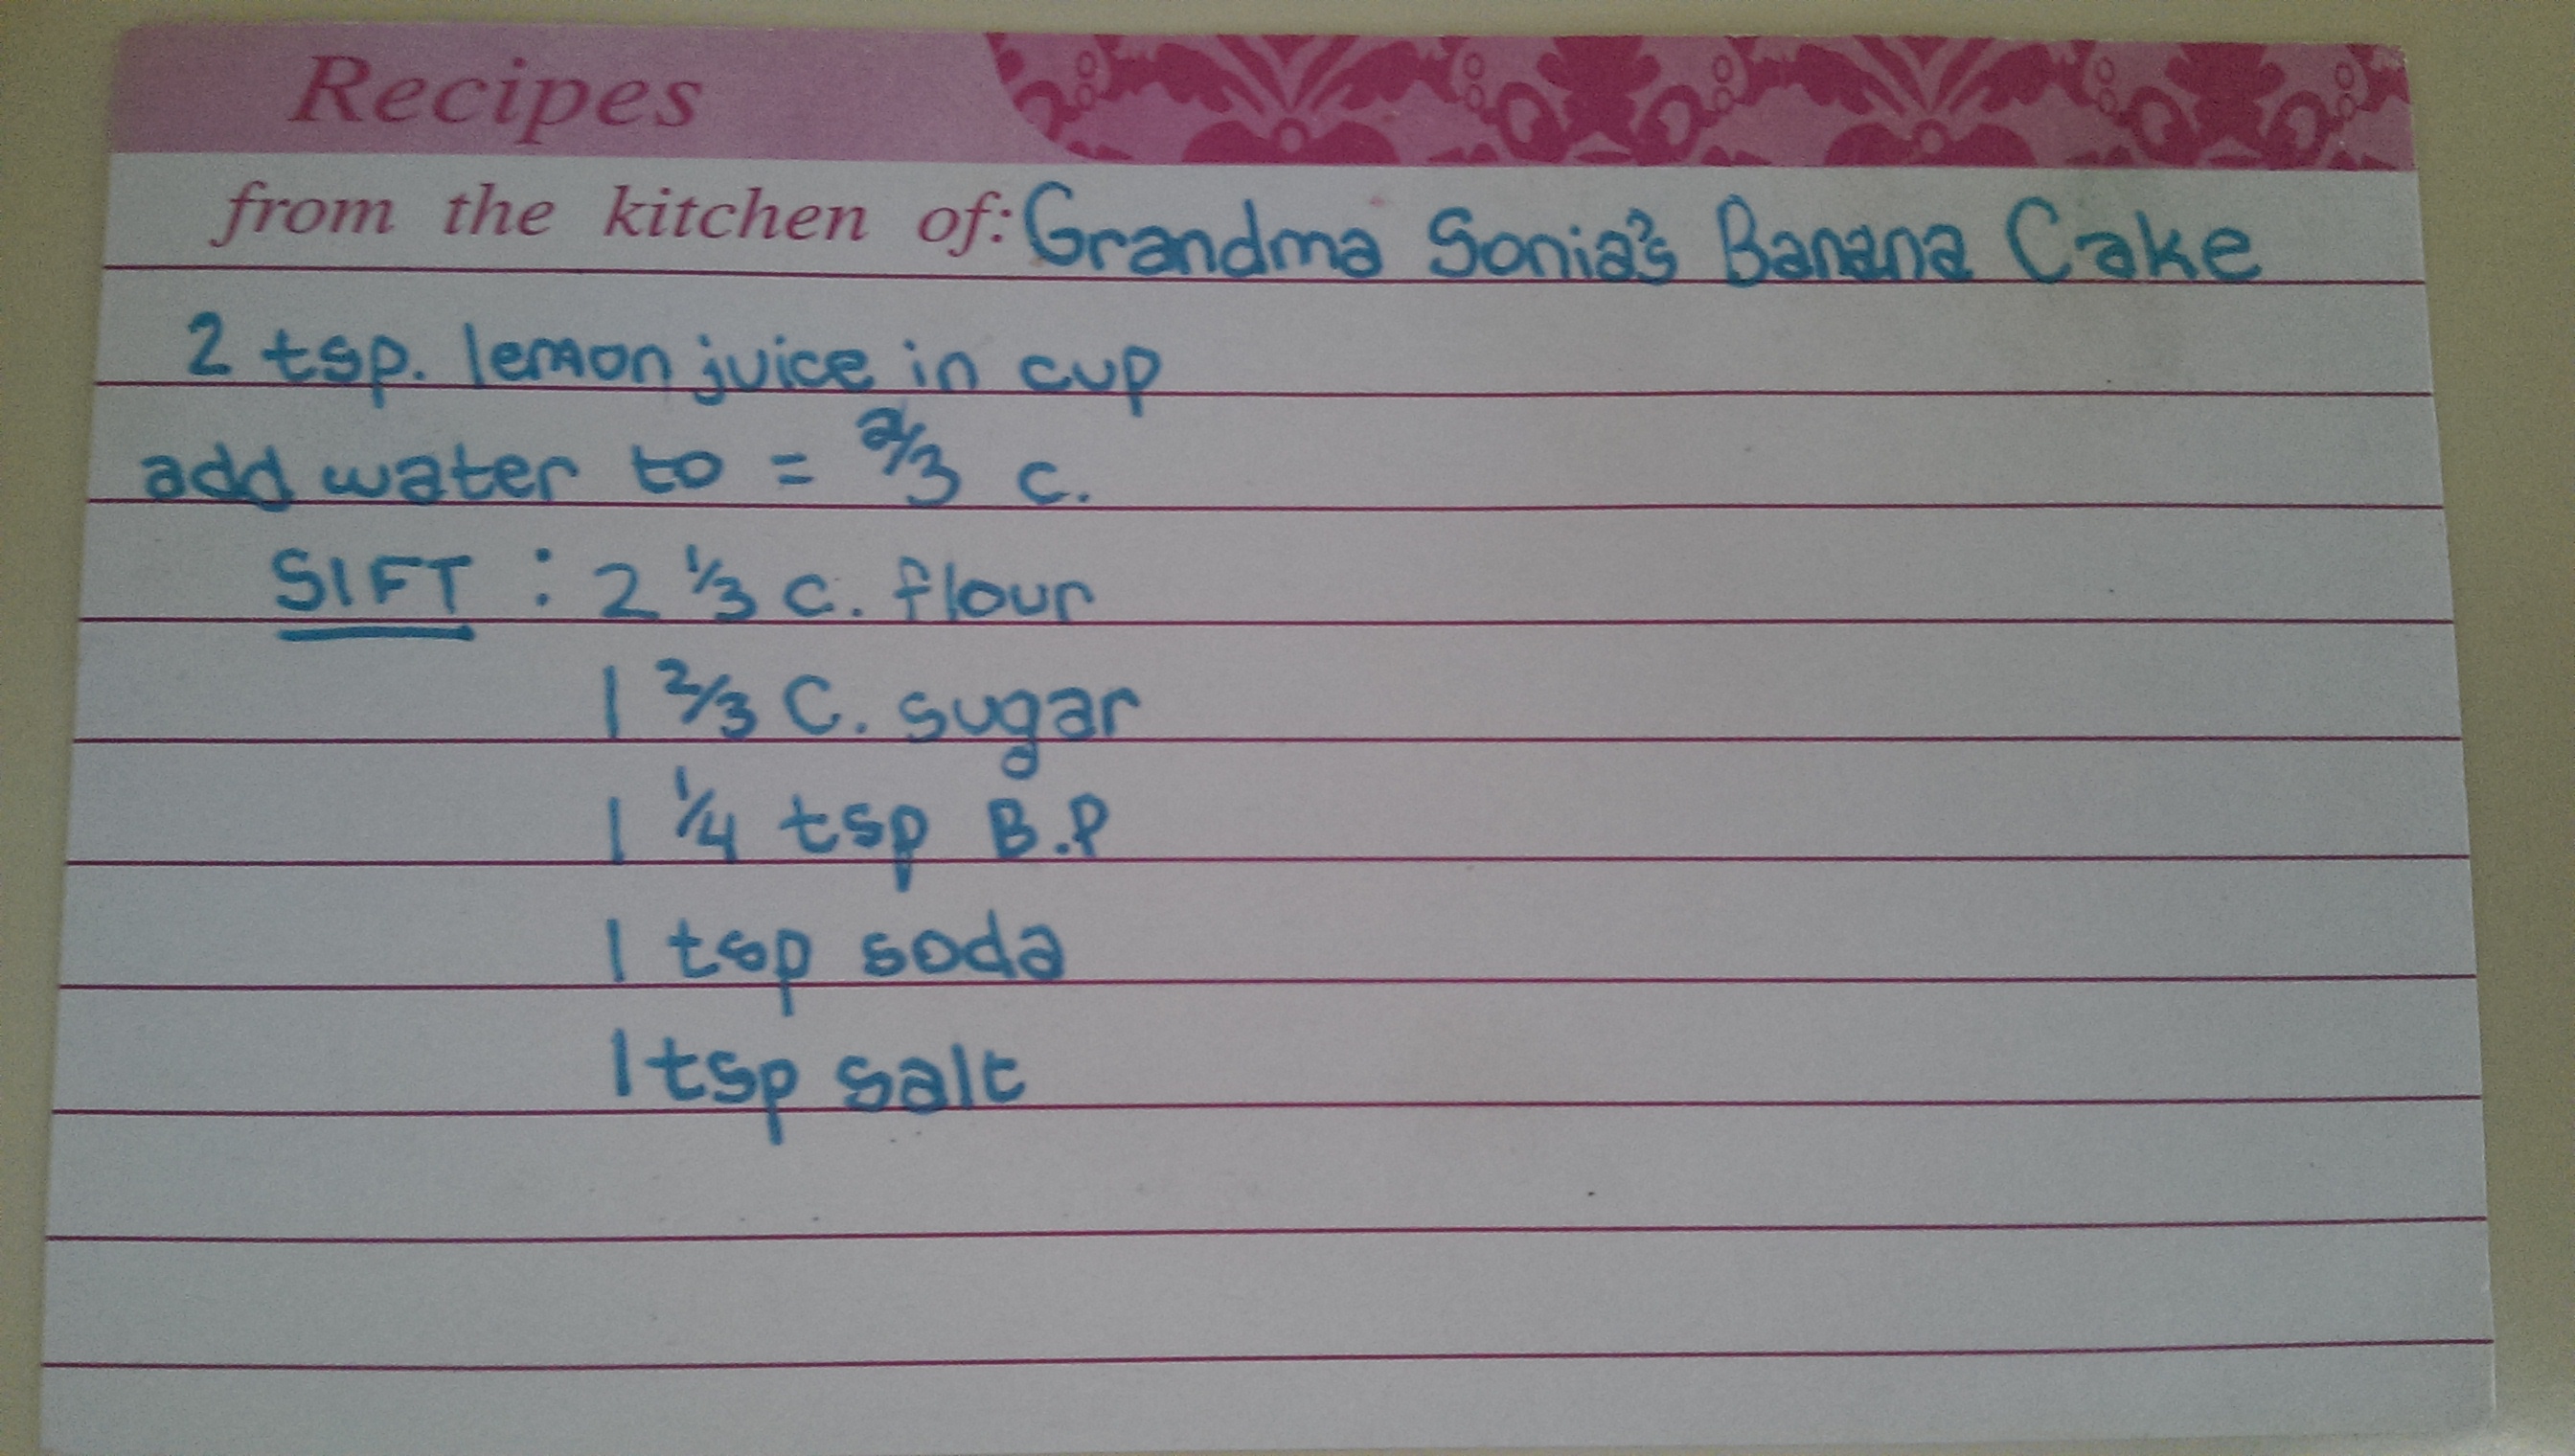 Recipes
from the kitchen of: Grandma Sonia's Banana Cake
2 tsp. lemon juice in cup
add water to = 2/3 c.
SIFT : 2 1/3 c. flour
1 2/3 C. sugar
1 1/4 tsp B.P
1 tsp soda
1 tsp salt